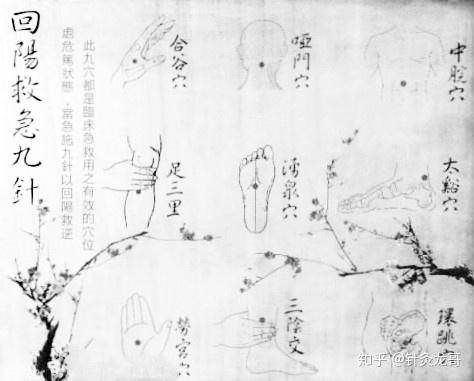 回陽救急九針
此九穴都是臨床急救用之有效的穴位
處危篤狀態，當急施九針以回陽救逆
合谷穴
啞門穴
中脘穴
足三里
湧泉穴
太谿穴
勞宮穴
三陰交
環跳
知乎 @针灸龙哥